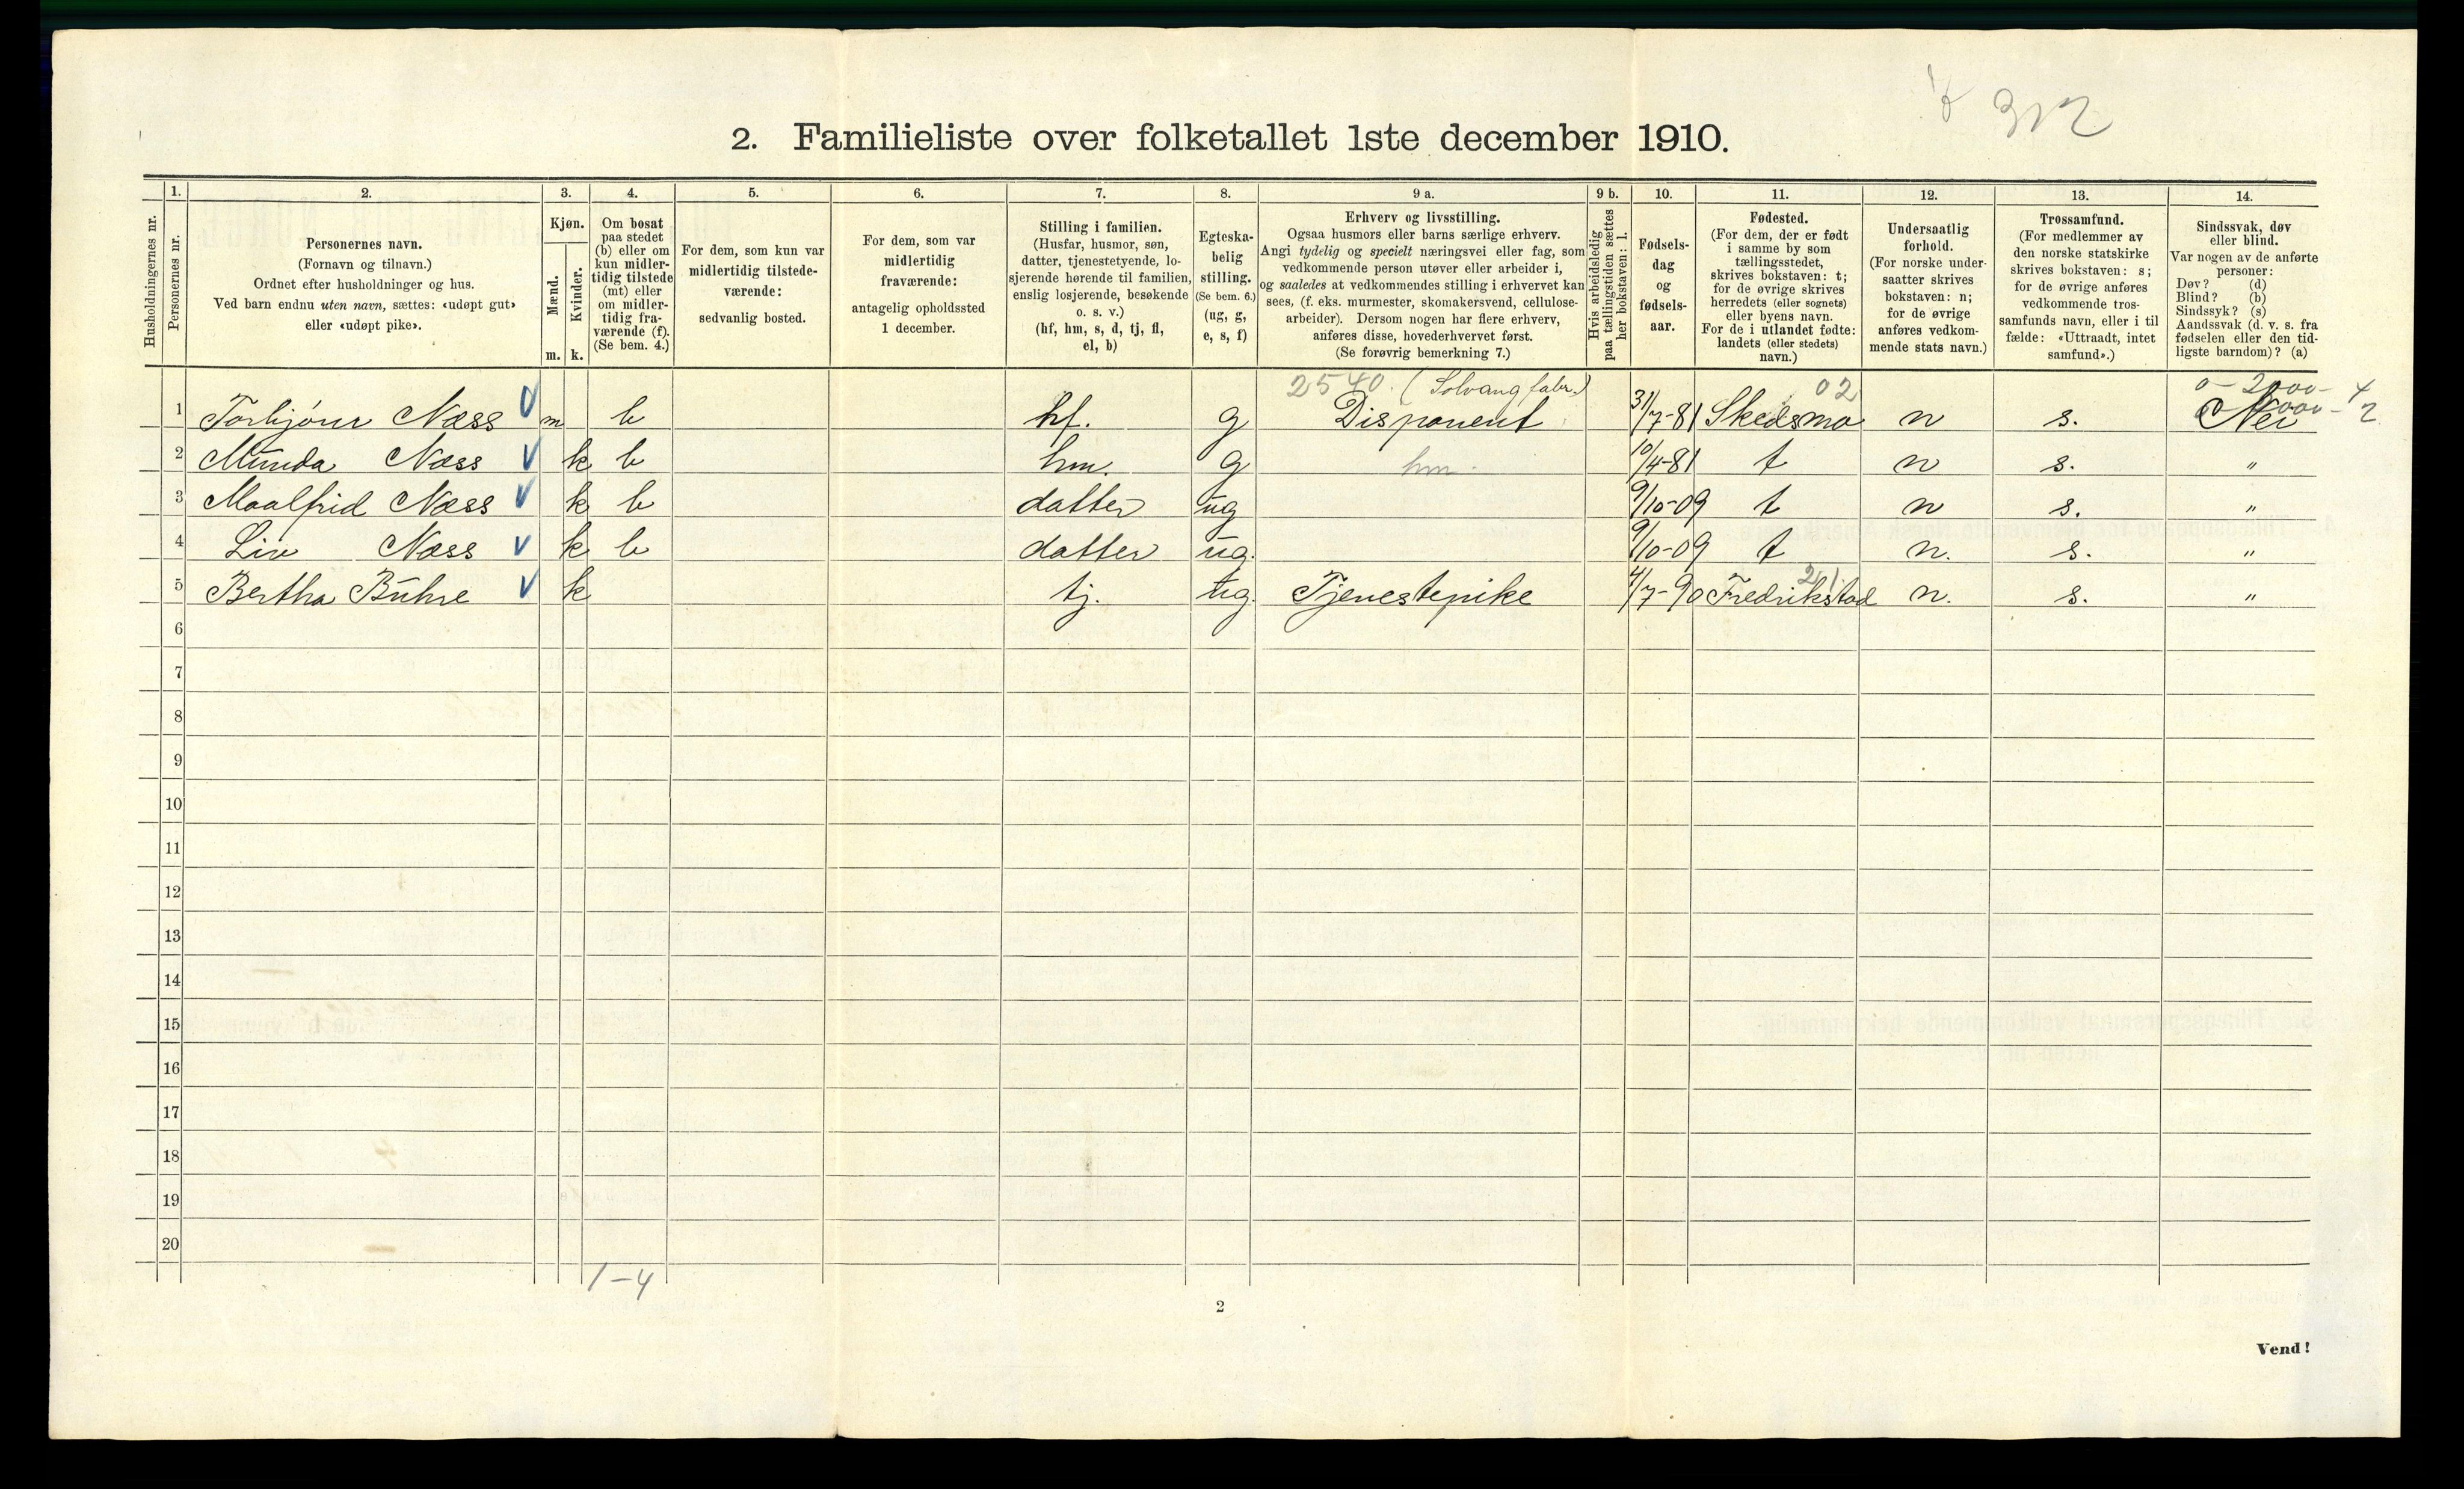 312
2. Familieliste over folketallet 1ste december 1910.
Husholdningernes nr.
1.
Personernes nr.
2.
Personernes navn.
(Fornavn og tilnavn.)
Ordnet efter husholdninger og hus.
Ved barn endnu uten navn, sættes: «udøpt gut»
eller «udøpt pike».
3.
Kjøn.
Mænd.
m.
Kvinder.
k.
4.
Om bosat
paa stedet
(b) eller om
kun midler-
tidig tilstede
(mt) eller
om midler-
tidig fra-
værende (f).
(Se bem. 4.)
5.
For dem, som kun var
midlertidig tilstede-
værende:
sedvanlig bosted.
6.
For dem, som var
midlertidig
fraværende:
antagelig opholdssted
1 december.
7.
Stilling i familien.
(Husfar, husmor, søn,
datter, tjenestetyende, lo-
sjerende hørende til familien,
enslig losjerende, besøkende
o. s. v.)
(hf, hm, s, d, tj, fl,
el, b)
8.
Egteska-
belig
stilling.
(Se bem. 6.)
(ug, g,
e, s, f)
9 a.
Erhverv og livsstilling.
Ogsaa husmors eller barns særlige erhverv.
Angi tydelig og specielt næringsvei eller fag, som
vedkommende person utøver eller arbeider i,
og saaledes at vedkommendes stilling i erhvervet kan
sees, (f. eks. murmester, skomakersvend, cellulose-
arbeider). Dersom nogen har flere erhverv,
anføres disse, hovederhvervet først.
(Se forøvrig bemerkning 7.)
9 b.
Hvis arbeidsledig
paa tællingstiden sættes
her bokstaven: l.
10.
Fødsels-
dag
og
fødsels-
aar.
11.
Fødested.
(For dem, der er født
i samme by som
tællingsstedet,
skrives bokstaven: t;
for de øvrige skrives
herredets (eller sognets)
eller byens navn.
For de i utlandet fødte:
landets (eller stedets)
navn.)
12.
Undersaatlig
forhold.
(For norske under-
saatter skrives
bokstaven: n;
for de øvrige
anføres vedkom-
mende stats navn.)
13.
Trossamfund.
(For medlemmer av
den norske statskirke
skrives bokstaven: s;
for de øvrige anføres
vedkommende tros-
samfunds navn, eller i til
fælde: «Uttraadt, intet
samfund».)
14.
Sindssvak, døv
eller blind.
Var nogen av de anførte
personer:
Døv? (d)
Blind? (b)
Sindssyk? (s)
Aandssvak (d. v. s. fra
fødselen eller den tid-
ligste barndom)? (a)
2540. (Solvang fabr.) 02 0 - 2000 - 4
1 Torbjörn Næss m b hf. g Disponent 31/7-81 Skedsmo n s. Nei
2 Munda Næss k b hm. g hm. 10/4-81 t n s. "
3 Maalfrid Næss k b datter ug 9/10-09 t n s. "
4 Liv Næss k b datter ug. 9/10-09 t n. s. "
21
5 Bertha Buhre k tj. ug. Tjenestepike 4/7-90 Fredrikstad n. s. "
6
7
8
9
10
11
12
13
14
15
16
17
18
19
20
1-4
2
Vend!